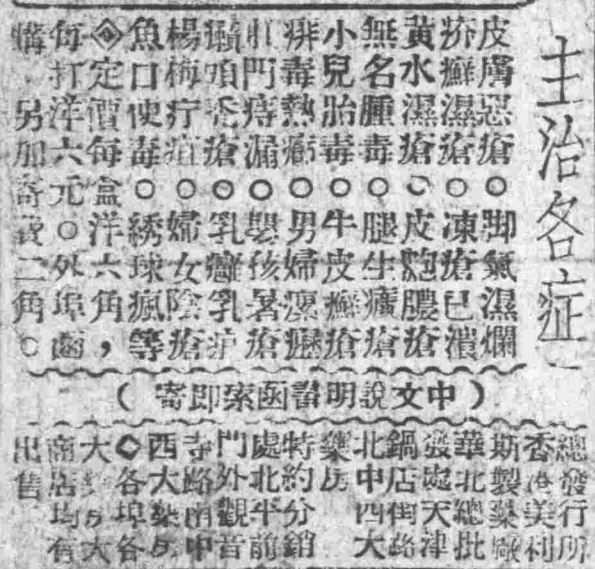 主治各症
皮膚惡瘡○脚氣濕爛
疥癬濕瘡○凍瘡已潰
黃水濕瘡○皮皰膿瘡
無名腫毒○腿生瘡
小兒胎毒○牛皮癬瘡
痱毒熱癤○男婦瘰癧
肛門痔漏○嬰孩暑瘡
癩頭禿瘡○乳癰乳
楊梅疔○婦女陰瘡
魚口便毒○綉球瘋等
定價每盒洋六角，
每打洋六元○外埠函
購另加寄費二角○
（中文說明書函索即寄）
總發行所
香港美利
斯製藥廠
華北總批
發處天津
鍋店街路
北中西大
藥房
特約分銷
處北平前
門外觀音
寺路南中
西大藥房
◇各埠各
大藥房大
商店均有
出售